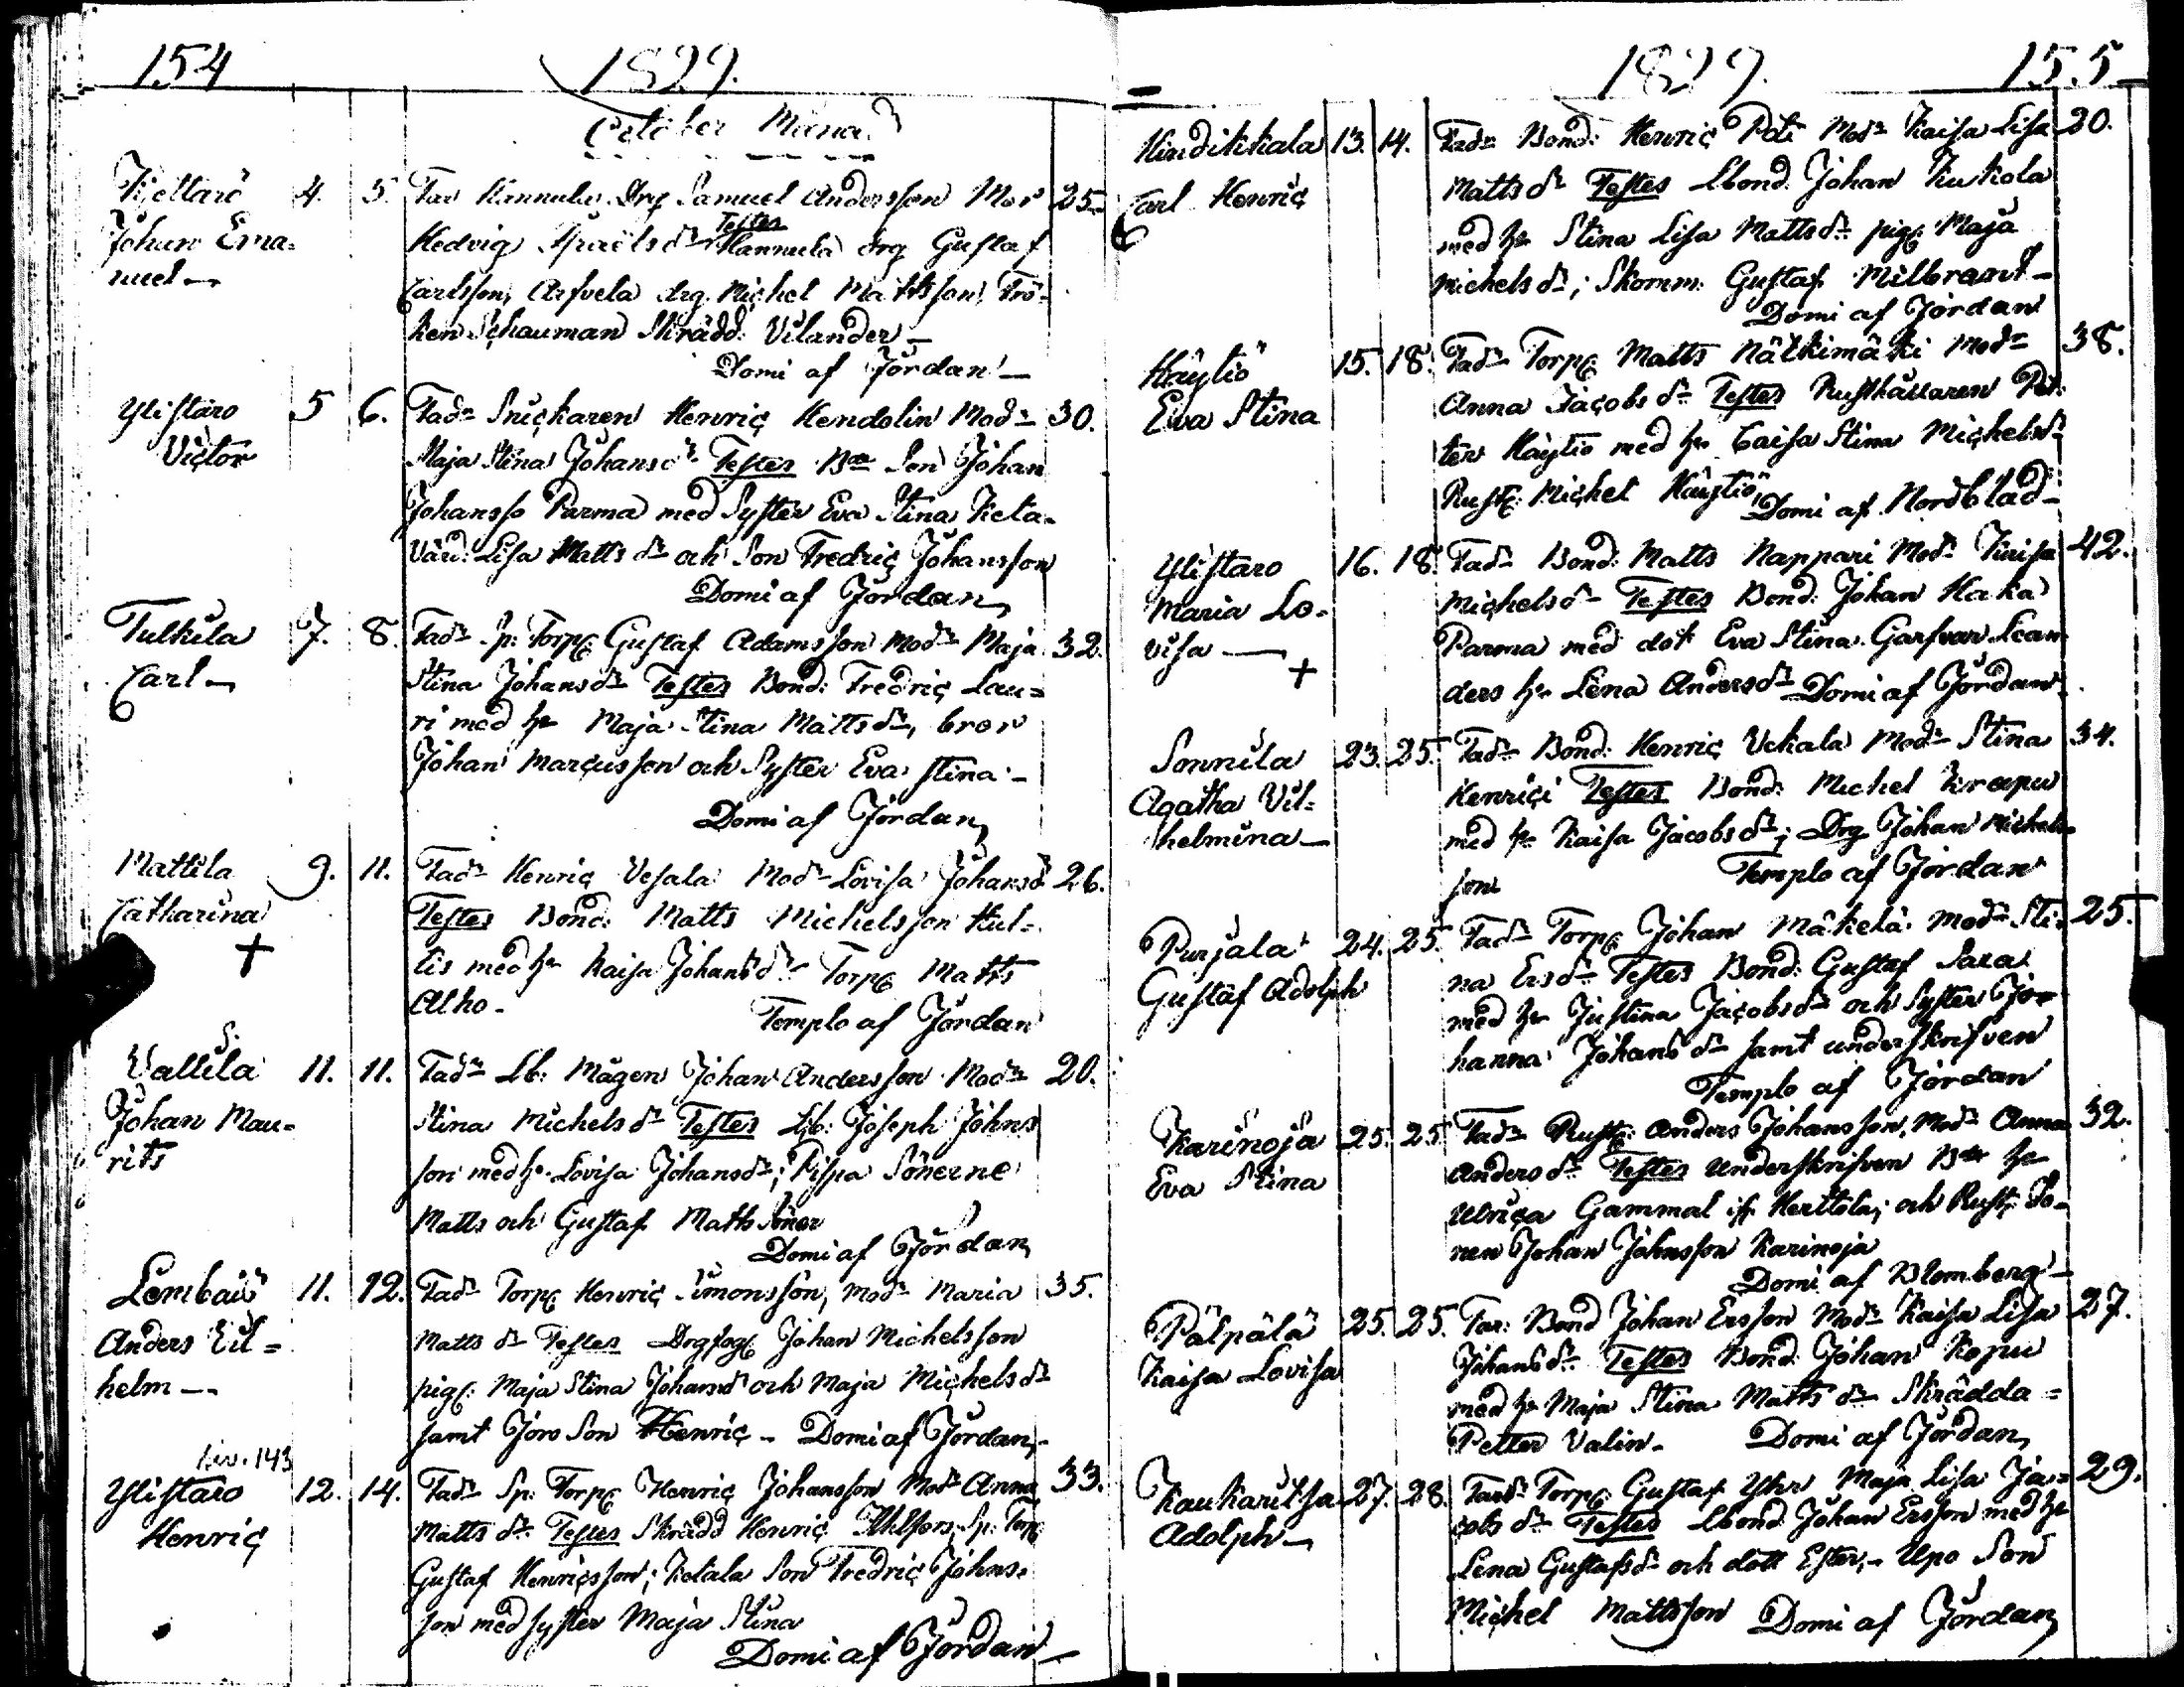 154
1829.
October Månad
Kjettarö 4. 5. Far Hannula Drg Samuel Andersson Mor 25
Johan Ema=
nuel
Hedvig Israelsdr Testes Hannula drg Gustaf
Carlsson, Arfvela drg. Michel Mattsson, Frö-
ken Schauman Skrädd: Vilander
Domi af Jordan
Ylistaro 5 6. Fadr Snickaren Henric Hendolin Modr 30.
Victor
Maja Stina Johansdr Testes Son Johan
Johansso Parma med Syster Eva Stina Keta-
Värd: Lisa Matts dr och Son Fredric Johansson
Domi af Jordan
Tulkila 7. 8. Fadr Sp: Torp Gustaf Adamsson Modr Maja 32.
Carl
Stina Johansdr Testes Bond: Fredric Lau=
ri med hr Maja Stina Mattsdr, bror
Johan Marcusson och Syster Eva Stina
Domi af Jordan
Mattila 9. 11. Fadr Henric Vesala Modr Lovisa Johansd 26.
Catharina
+
Testes Bond: Matts Michelsson Kul=
tis med hr Kaisa Johansdr Torp Matts
Alho.
Templo af Jordan
Vallila 11. 11. Fadr Lb: Mågen Johan Andersson Modr 20.
Johan Mau=
rits
Stina Michelsdr Testes Lb: Joseph Johns
son med hr Lovisa Johansdr; Pispa Sönerne
Matts och Gustaf Matts Söner
Domi af Jordan
Lembois 11. 12. Fadr Torp Henric Simonsson, modr Maria 35.
Anders Vil=
helm
Matts dr Testes Drg Johan Michelsson
pig: Maja Stina Johansdr och Maja Michelsdr
samt Son Henric - Domi af Jordan
143
Ylistaro 12. 14. Fadr Sp. Torp Henric Johansson Modr Anna 33.
Henric
Matts dr Testes Skrädd Henric Sp: Torp
Gustaf Henricsson; Ketala Son Fredric Johns=
son med syster Maja Stina
Domi af Jordan
1829.
155
13. 14. Fadr Bond: Henric Poti Modr Kaisa Lisa 20.
Carl Henric
Mattsdr Testes Lbond. Johan Kukola
med hr Stina Lisa Mattsdr pig Maja
Michelsdr; Skomm: Gustaf Millbrant
Domi af Jordan
Käytiö 15. 18. Fadr Torp Matts Nälkimäki Modr 38.
Eva Stina
Anna Jacobsdr Testes Rusthållaren Pet-
ter Käytiö med hr Caisa Stina Michelsdr
Rust: Michel Käytiö
Domi af Nordblad
Ylistaro 16. 18. Fadr Bond: Matts Nappari Modr 42.
Maria Lo-
visa
+
Michelsdr Testes Bond. Johan Haka
Parma med dot Eva Stina. Garfvar Lean-
ders hr Lena Andersdr Domi af Jordan
Sonnila 23. 25. Fadr Bond: Henric Uckala Modr Stina 34.
Agatha Vil=
helmina
Henrici Testes Bond: Michel Krapu
med hr Kaisa Jacobsdr; Drg Johan Michels-
son
Templo af Jordan
Purjala 24. 25. Fadr Torp Johan Mäkelä Modr Sti- 25.
Gustaf Adolph
na Ersdr Testes Bond: Gustaf Sara
med hr Justina Jacobsdr och Syster Jo-
hanna Johansdr samt underskrifven
Templo af Jordan
Karinoja 25. 25. Fadr Rust: Anders Johansson, Modr Anna 32.
Eva Stina
Andersdr Testes Underskrifven hr
Ulrica Gammal if: Herttola; och Rust: So-
nen Johan Johnsson Karinoja
Domi af Blomberg
Pälpälä 25. 25. Far: Bond Johan Ersson Modr Kaisa Lisa 27.
Kaisa Lovisa
Johansdr Testes Bond: Johan Kopu
med hr Maja Stina Matts dr Skrädda=
Petter Valin. Domi af Jordan
Kaukaritsa 27. 28. Fadr Torp: Gustaf Maja Lisa Ja= 29.
Adolph
cobs dr Testes Lbond Johan Ersson med hr
Lena Gustafsdr och dott Ester, Upo Son
Michel Mattsson Domi af Jordan